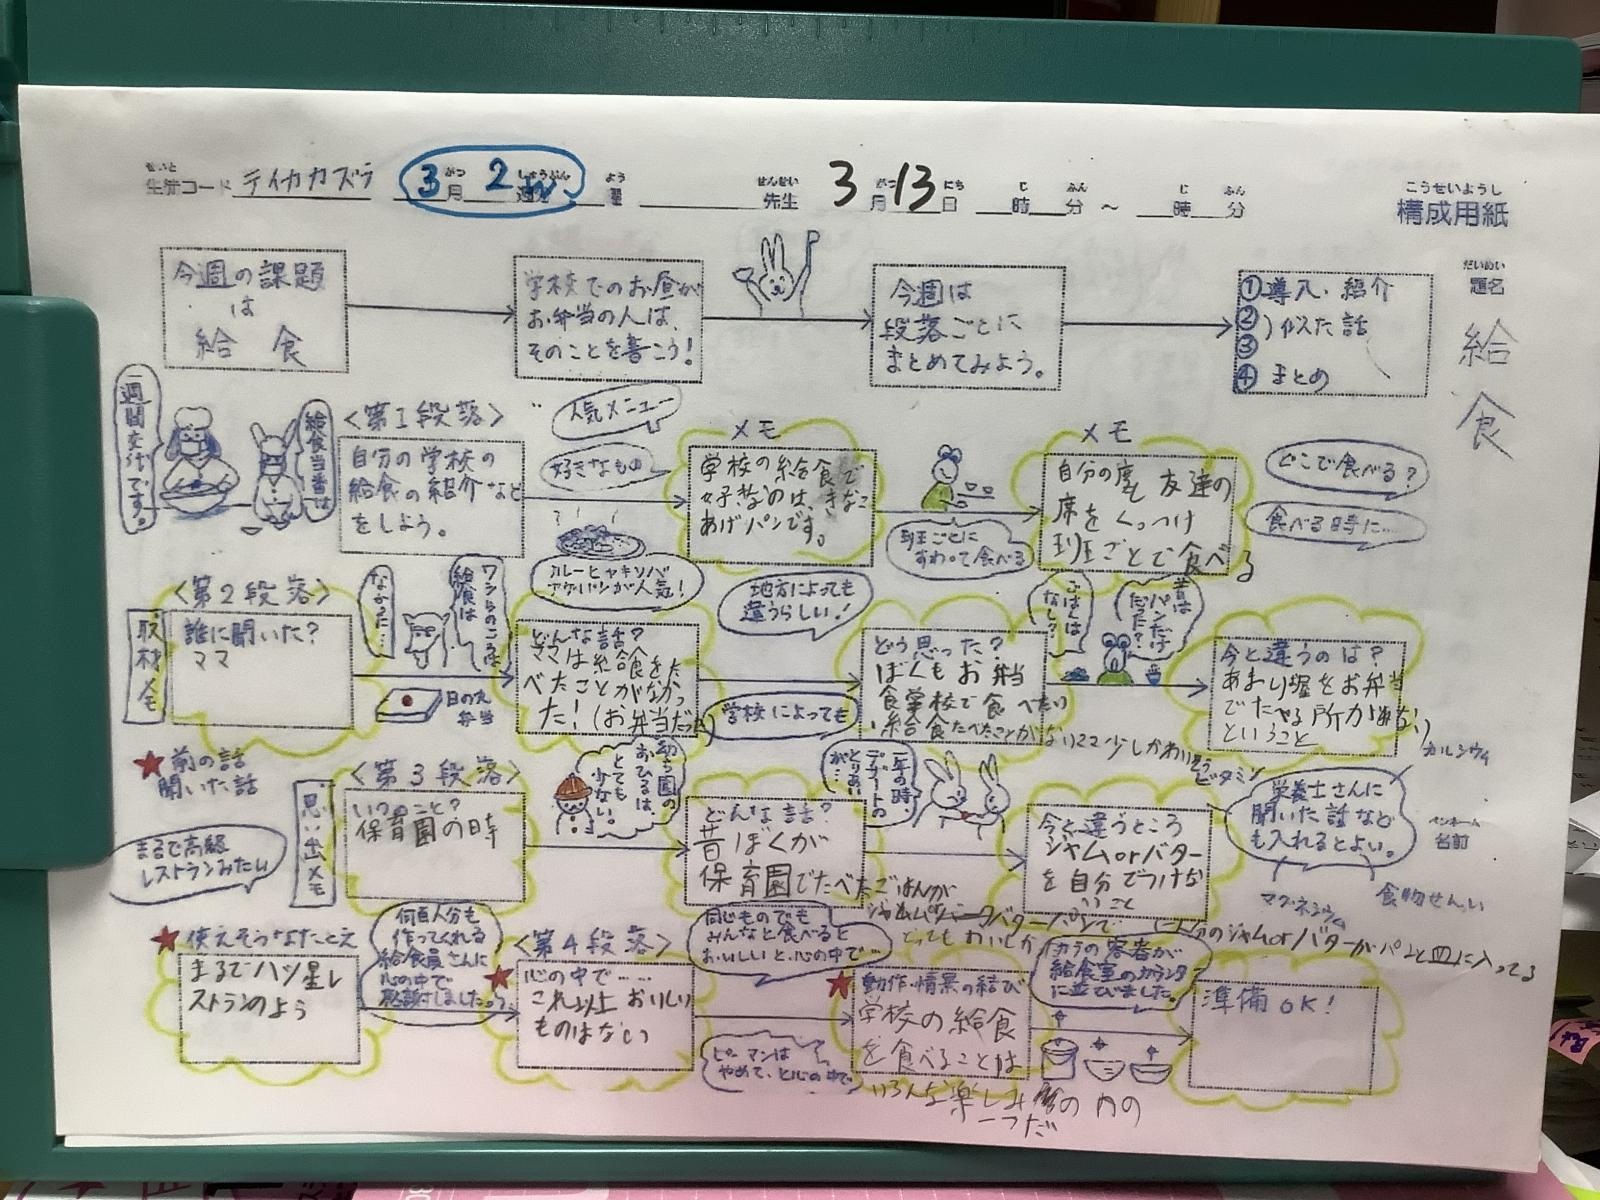 せいと
生徒コード テイカカズラ
3月 2週
先生
3月13日 時 分 ～ 時 分
こうせいようし
構成用紙
だいめい
題名
給食
今週の課題
は
給食
学校でのお昼が
お弁当の人は、
そのことを書こう!
今週は
段落ごとに
まとめてみよう。
①導入・紹介
②)似た話
③
④まとめ
一週間交代です。
給食当番は
<第1段落>
自分の学校の
給食の紹介など
をしよう。
人気メニュー
好きなもの
カレーヒャキソバ
アゲパンが人気!
メモ
学校の給食で
好きなのは、きなこ
あげパンです。
班ごとに
すわって食べる
メモ
自分の席と友達の
席をくっつけ
班ごとで食べる
どこで食べる?
食べる時に…
<第2段落>
取材メモ
誰に聞いた?
ママ
なかった…
ワシらのころは
給食は
日の丸
弁当
どんな話?
ママは給食をた
べたことがなかっ
た!(お弁当だった)
地方によっても
違うらしい!
学校によっても
どう思った?
ぼくもお弁当
給食たべたことがないママ少しかわいそう
ごはんは
なし?
昔は
パンだけ
だった?
今と違うのは?
お弁当
ということ
★前の話
聞いた話
まるで高級
レストランみたい
<第3段落>
思い出メモ
いつのこと?
保育園の時
幼ち園の
おひるは、
とても
少ない。
どんな話?
昔ぼくが
保育園でたべたごはんが
とってもおいしか
一年の時、
デザートの
とりあい
が…
今と違うところ
ジャムorバター
を自分でつけな
いこと
自分のジャムorバターがパンと皿に入ってる
ビタミン
カルシウム
栄養士さんに
聞いた話など
も入れるとよい。
マグネシウム
食物せんい
ペンネーム
名前
★使えそうなたとえ
まるで八ツ星レ
ストランのよう
何百人分も
作ってくれる
給食員さんに
心の中で
感謝しました。
<第4段落>
★心の中で……
これ以上おいしい
ものはない
同じものでも
みんなと食べると
おいしいと、心の中で…
ピーマンは
やめて、と心の中で
★動作・情景の結び
学校の給食
を食べることは
いろんな楽しみの中の
一つだ
カラの容器が
給食室のカウンタ
に並びました。
準備OK!